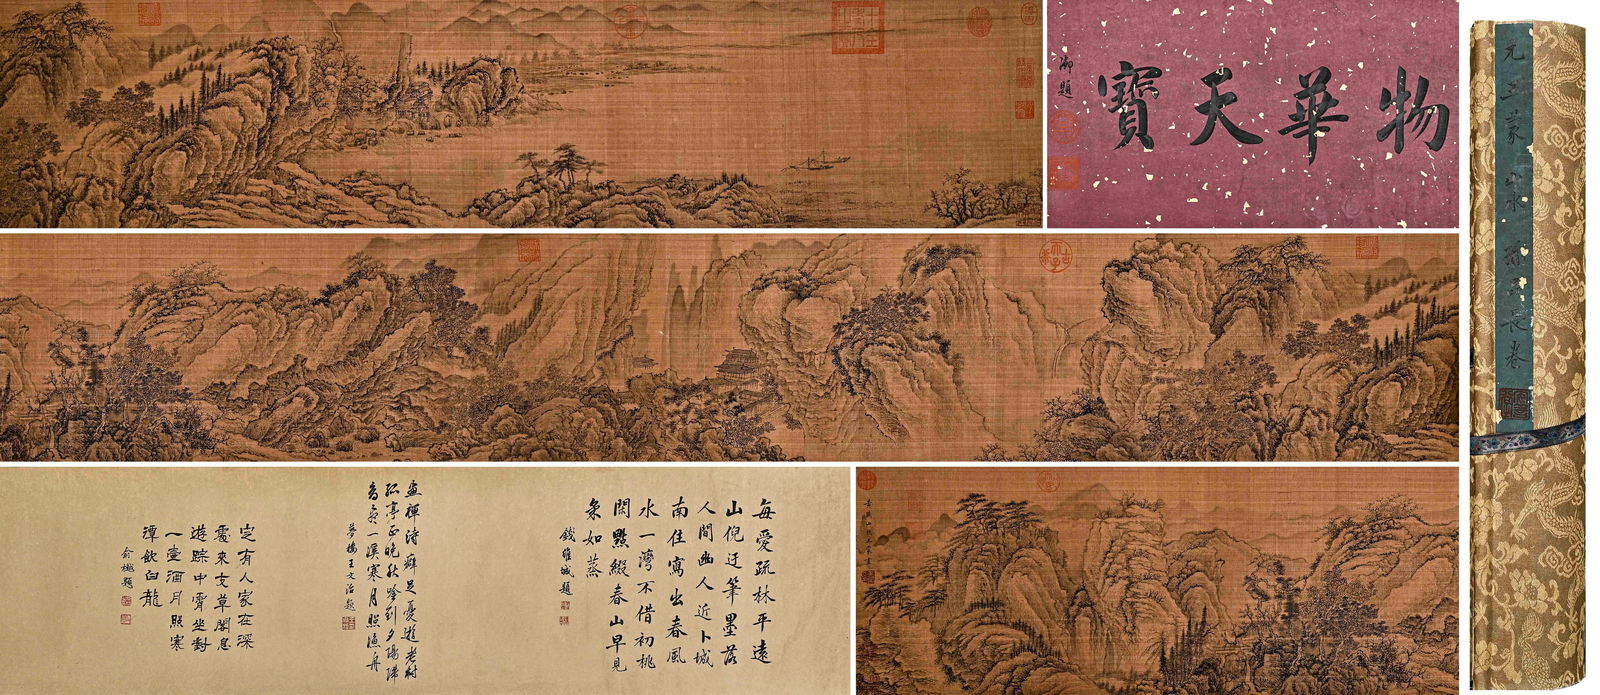 物華天寶
御題
元王蒙山水
長卷
每愛疏林平遠
山倪迂筆墨落
人間幽人近卜城
南住寫出春風
水一灣不借初桃
閑點綴春山早見
氣如蒸
錢維城題
畫禪詩癖足憂遊老樹
孤亭正晚秋吟到夕陽歸
鳥盡一溪寒月照漁舟
夢樓王文治題
定有人家在深
處來支草閣息
遊踪中霄坐對
一壺酒月照寒
潭飲白龍
俞樾題